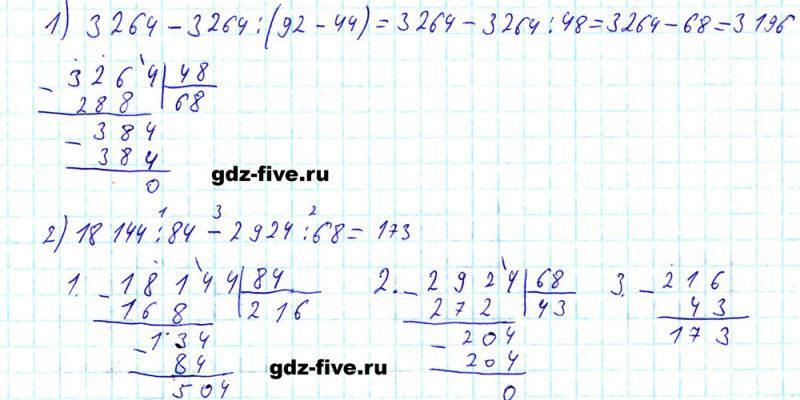 1) 3264 - 3264 : (92 - 44) = 3264 - 3264 : 48 = 3264 - 68 = 3196
- 3264 | 48
288 | 68
- 384
384
0
gdz-five.ru
1 3 2
2) 18 144 : 84 - 2924 : 68 = 173
1. - 18144 | 84
168 | 216
- 134
84
504
2. - 2924 | 68
272 | 43
- 204
204
0
3. - 216
43
173
gdz-five.ru